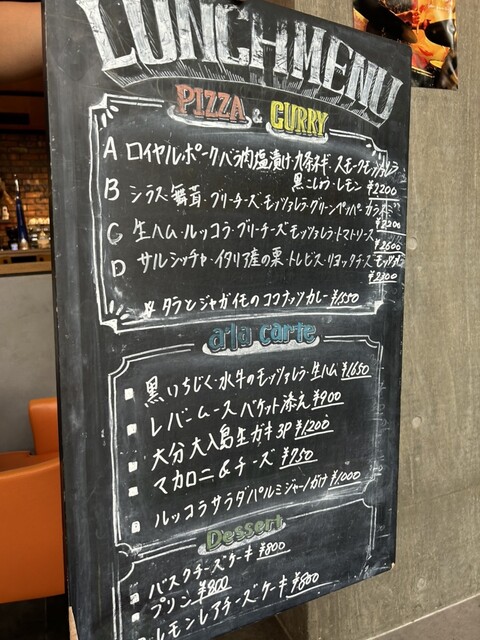 LUNCH MENU
PIZZA & CURRY
A ロイヤルポークバラ肉塩漬け・九条ネギ・スモークモッツァレラ
黒こしょう・レモン ¥2200
B シラス・舞茸・ブリーチーズ・モッツァレラ・グリーンペッパー・カラスミ
¥2200
C 生ハム・ルッコラ・ブリーチーズ・モッツァレラ・トマトソース
¥2600
D サルシッチャ・イタリア産の栗・トレビス・リコッタチーズ・モッツァレラ
¥2300
※ タラとジャガイモのココナッツカレー ¥1550
a'la carte
黒いちじく・水牛のモッツァレラ・生ハム ¥1650
レバームース バケット添え ¥900
大分 大入島生ガキ 3P ¥1,200
マカロニ&チーズ ¥750
ルッコラサラダパルミジャーノがけ ¥1,000
Dessert
バスクチーズケーキ ¥800
プリン ¥800
レモンレアチーズケーキ ¥800